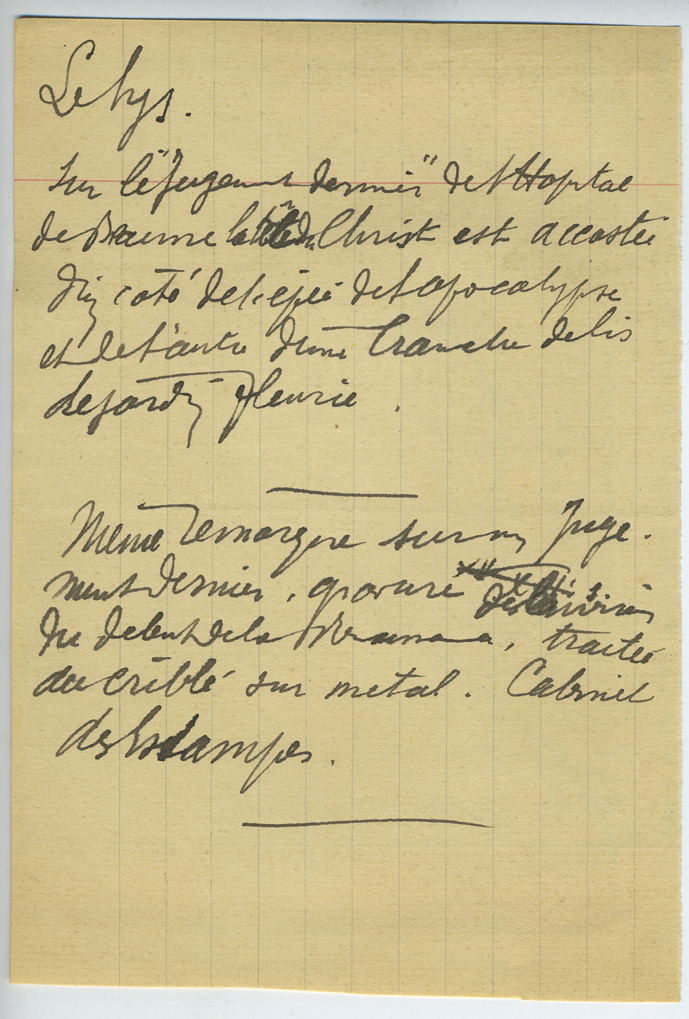 Le lys.
Sur le "Jugement dernier" de l'Hopital
de Beaune la tête du Christ est accostée
d'un coté de l'epée de l'apocalypse
et de l'autre d'une branche de lis
de jardin fleurie.
Meme remarque sur un Juge-
ment dernier, gravure
du debut de la Renaissance, traitée
au criblé sur metal. Cabinet
des Estampes.